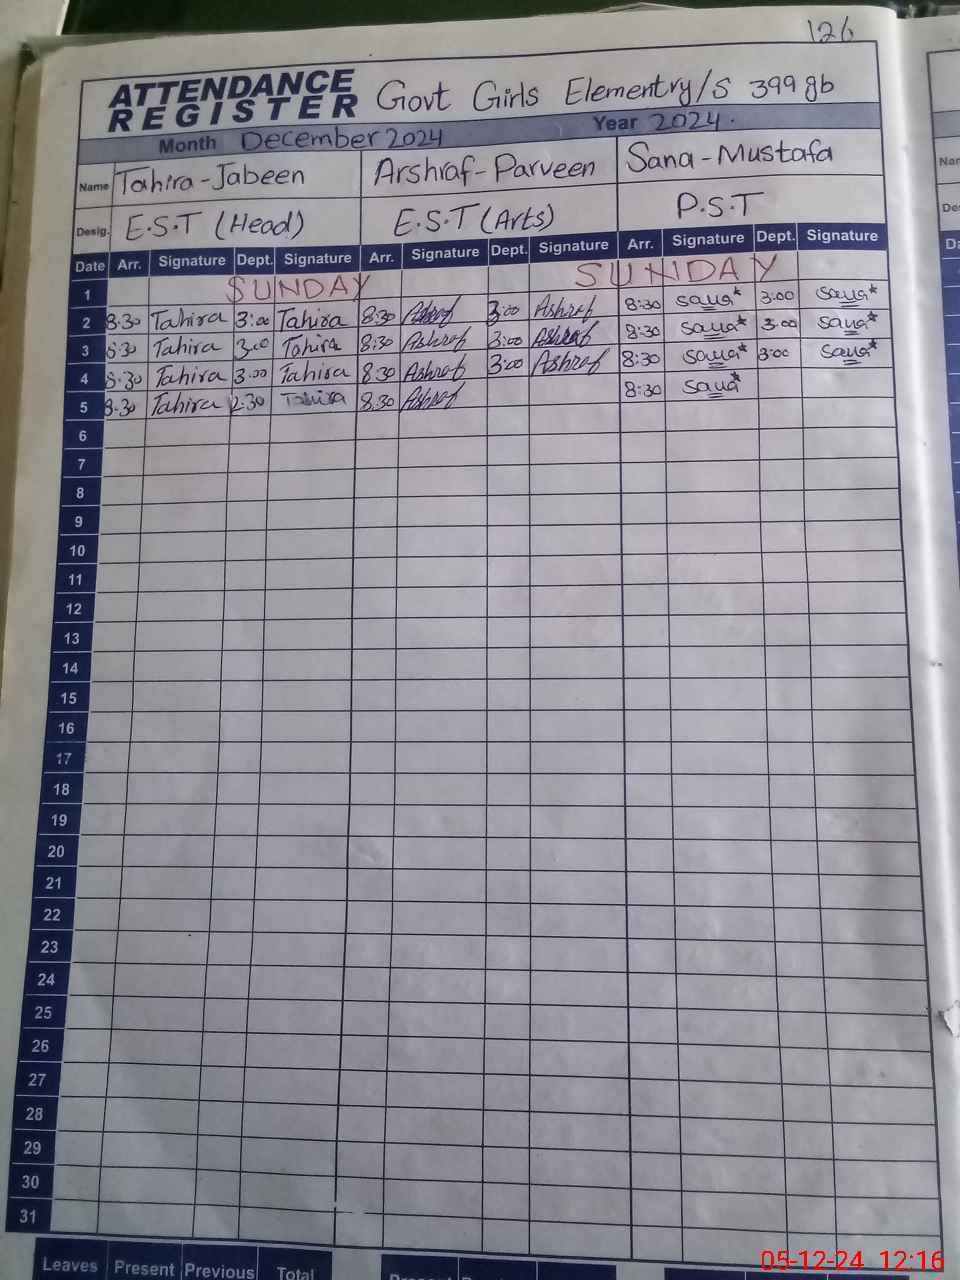 126
ATTENDANCE REGISTER Govt Girls Elementry/S 399 gb
Month December 2024 Year 2024.
Name Tahira-Jabeen Arshraf-Parveen Sana-Mustafa
Desig. E.S.T (Head) E.S.T (Arts) P.S.T
Date Arr. Signature Dept. Signature Arr. Signature Dept. Signature Arr. Signature Dept. Signature
1 SUNDAY SUNDAY
2 8:30 Tahira 3:00 Tahira 8:30 Ashraf 3:00 Ashraf 8:30 sana* 3:00 sana*
3 8:30 Tahira 3:00 Tahira 8:30 Ashraf 3:00 Ashraf 8:30 sana* 3:00 sana*
4 8:30 Tahira 3:00 Tahira 8:30 Ashraf 3:00 Ashraf 8:30 sana* 3:00 sana*
5 8:30 Tahira 2:30 Tahira 8:30 Ashraf 8:30 sana*
6
7
8
9
10
11
12
13
14
15
16
17
18
19
20
21
22
23
24
25
26
27
28
29
30
31
Leaves Present Previous Total
05-12-24 12:16